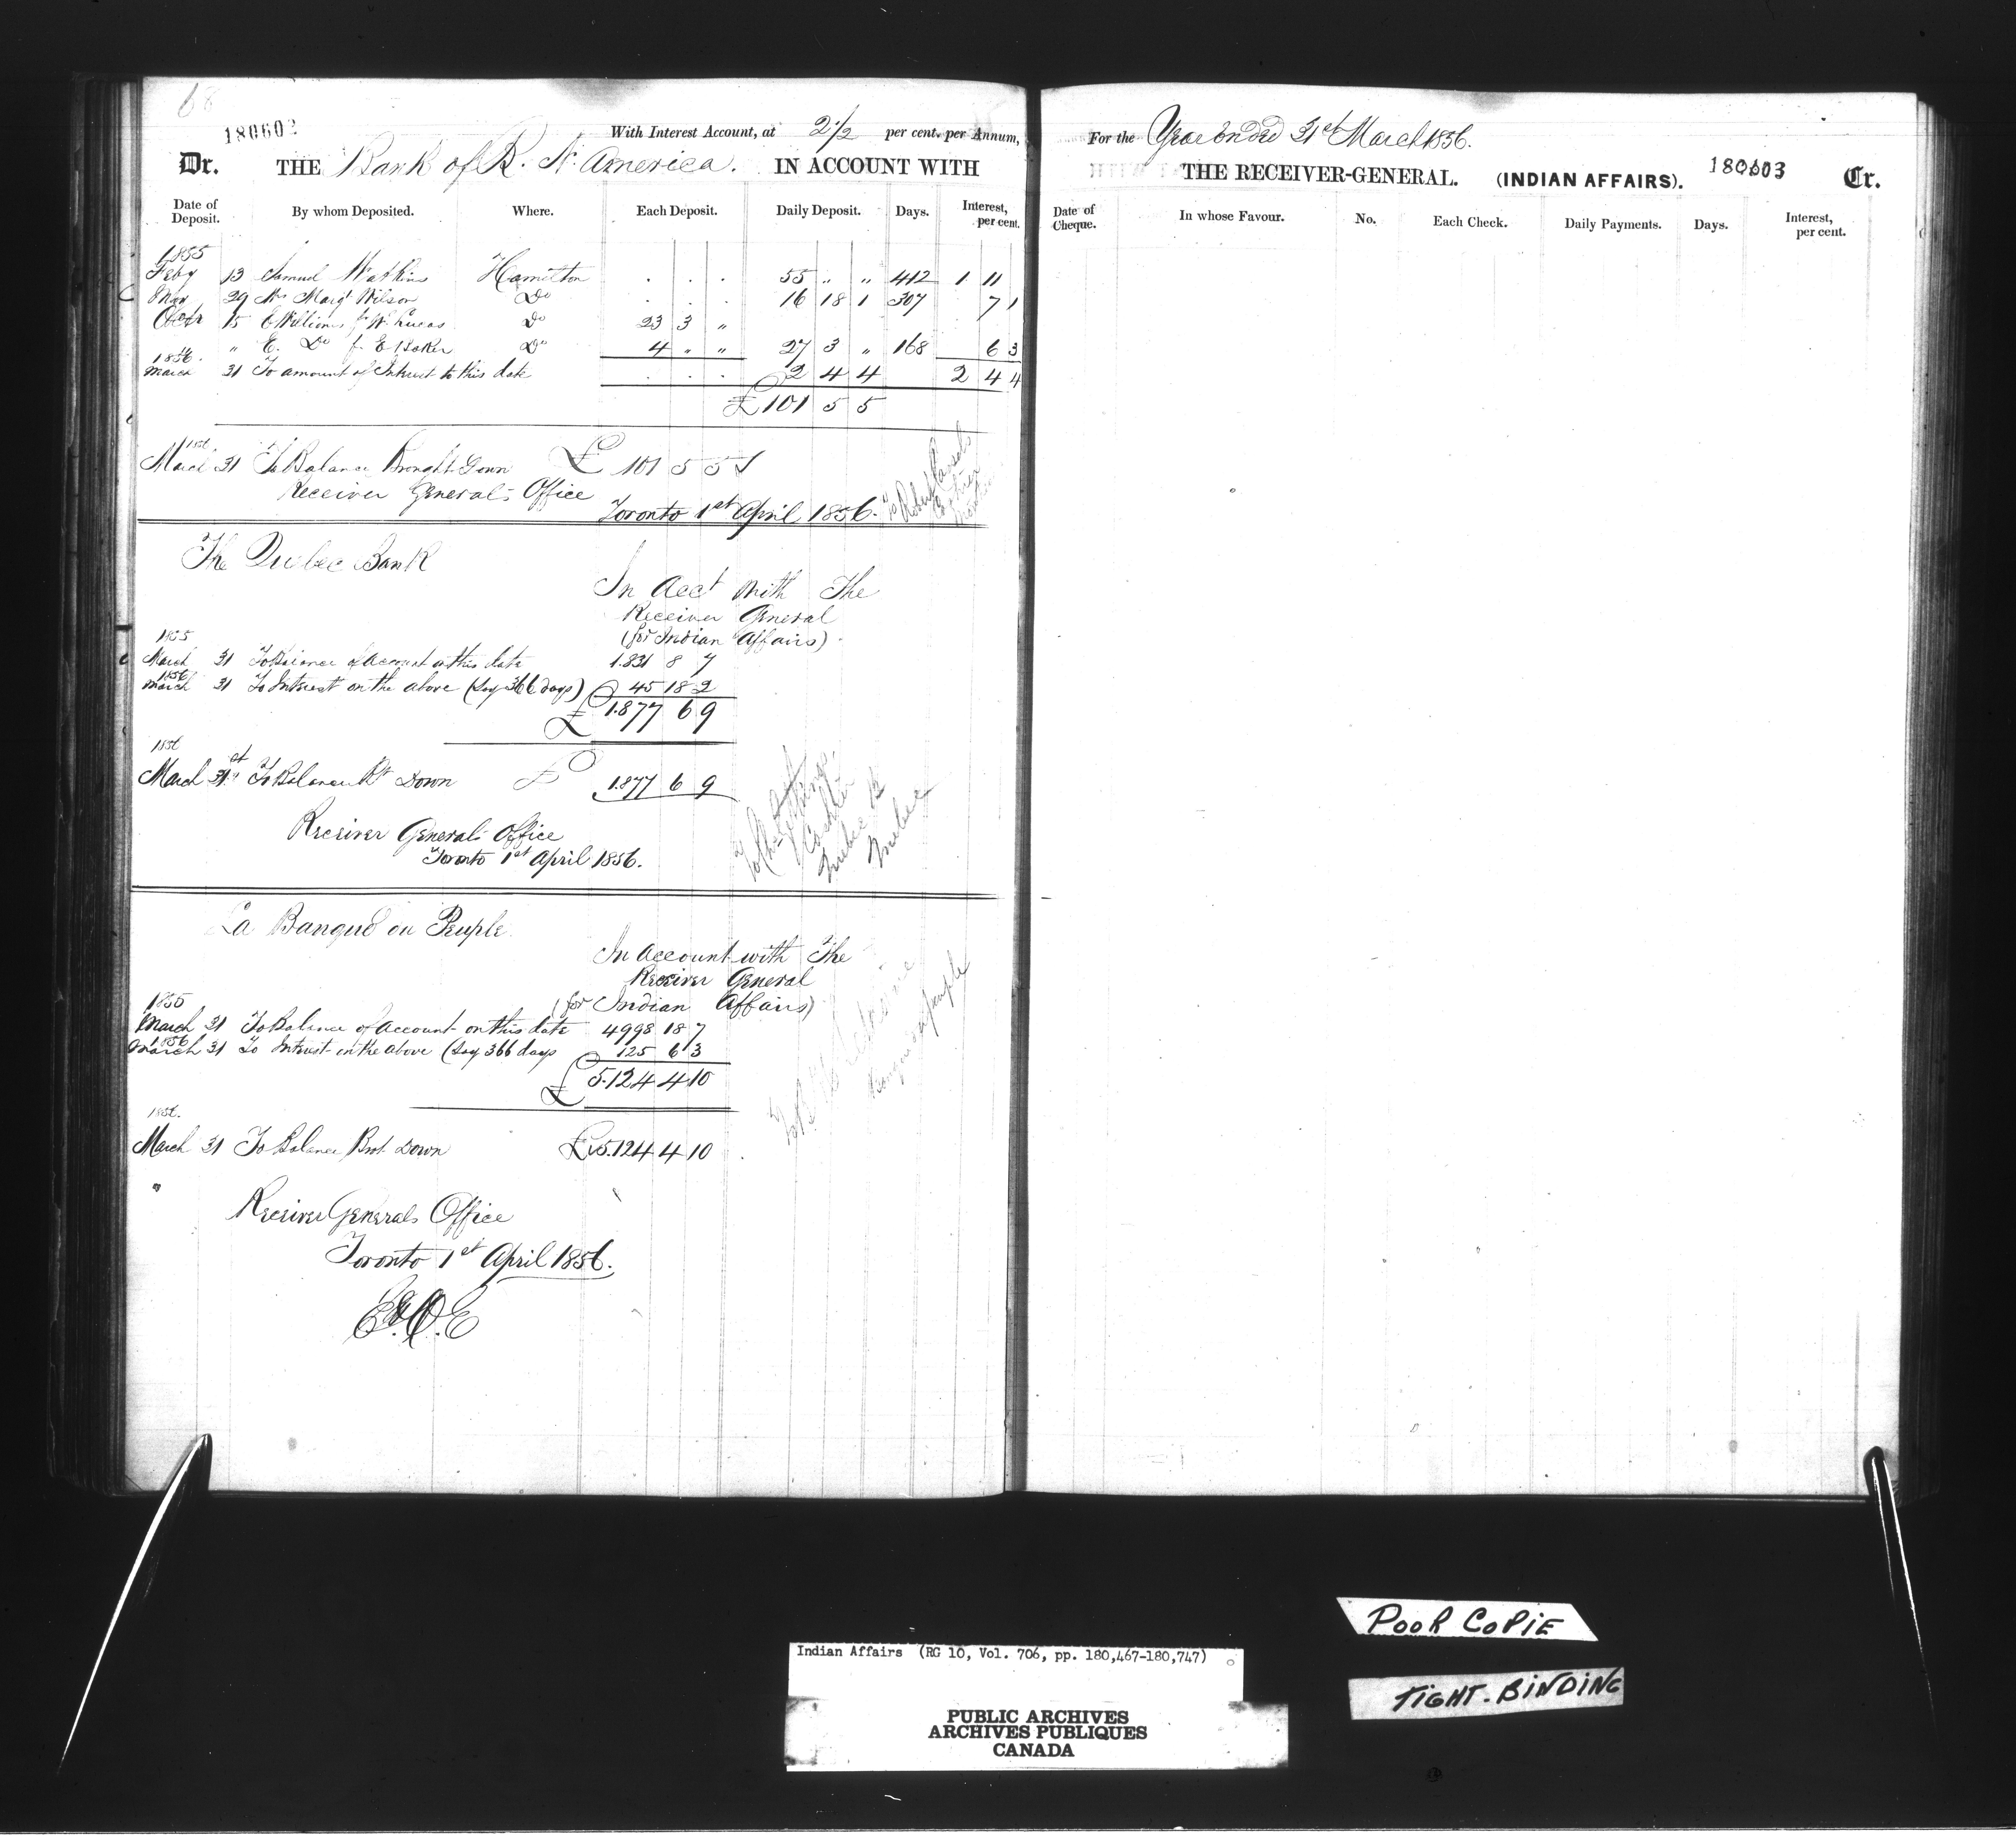 68
180602
With Interest Account, at 2 1/2 per cent. per Annum,
Dr. THE Bank of B. N. America. IN ACCOUNT WITH
Date of Deposit. By whom Deposited. Where. Each Deposit. Daily Deposit. Days. Interest, per cent.
1855
Feby 13 Samuel Watkins Hamilton . . . 55 " " 412 1 11
May 29 Mrs Margt Wilson Do . . . 16 18 1 307 7 1
Octr 15 E Williams for W. Lucas Do 23 3 "
" " E. Do f E Baker Do 4 " " 27 3 " 168 6 3
1856.
March 31 To amount of Interest to this date . . . 2 4 4 2 4 4
£ 101 5 5
1856
March 31 To Balance Brought Down £ 101 5 5
Receiver General's Office
Toronto 1st April 1856.
To Robert Cassels
The Quebec Bank
In Acct With The
Receiver General
(for Indian Affairs)
1855
March 31 To Balance of Account on this date 1.831 8 7
1856
March 31 To Interest on the above (Say 366 days) 45 18 2
£ 1.877 6 9
1856
March 31st To Balance Bt Down £ 1.877 6 9
Receiver General's Office
Toronto 1st April 1856.
Cashier
Quebec B
Quebec
La Banque du Peuple
In Account with The
Receiver General
(for Indian Affairs)
1855
March 31 To Balance of Account on this date 4998 18 7
1856
March 31 To Interest on the above (Say 366 days 125 6 3
£ 5.124 4 10
1856.
March 31 To Balance Brot Down £ 5.124 4 10
Receiver Generals Office
Toronto 1st April 1856.
E. & O. E
For the Year Ended 31st March 1856.
THE RECEIVER-GENERAL. (INDIAN AFFAIRS). 180603 Cr.
Date of Cheque. In whose Favour. No. Each Check. Daily Payments. Days. Interest, per cent.
POOR COPIE
TIGHT-BINDING
Indian Affairs (RG 10, Vol. 706, pp. 180,467-180,747)
PUBLIC ARCHIVES
ARCHIVES PUBLIQUES
CANADA